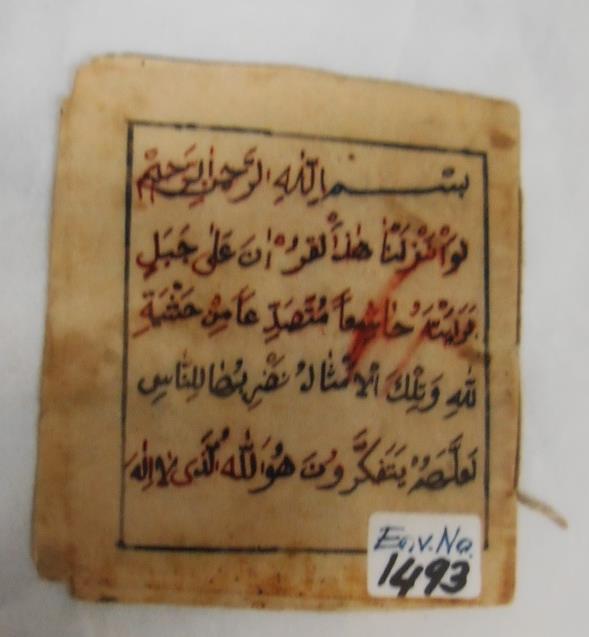 بِسْمِ اللّٰهِ الرَّحْمٰنِ الرَّحِيْمِ
لَوْ اَنْزَلْنَا هٰذَا لْقُرْاٰنَ عَلٰى جَبَلٍ
لَرَاَيْتَهٗ خَاشِعاً مُتَصَدِّعاً مِنْ خَشْيَةِ
للّٰهِ وَتِلْكَ الْاَمْثَالُ نَضْرِبُهَا لِلنَّاسِ
لَعَلَّهُمْ يَتَفَكَّرُونَ هُوَ اللّٰهُ الَّذِى لَا اِلٰهَ
En.v.No.
1493